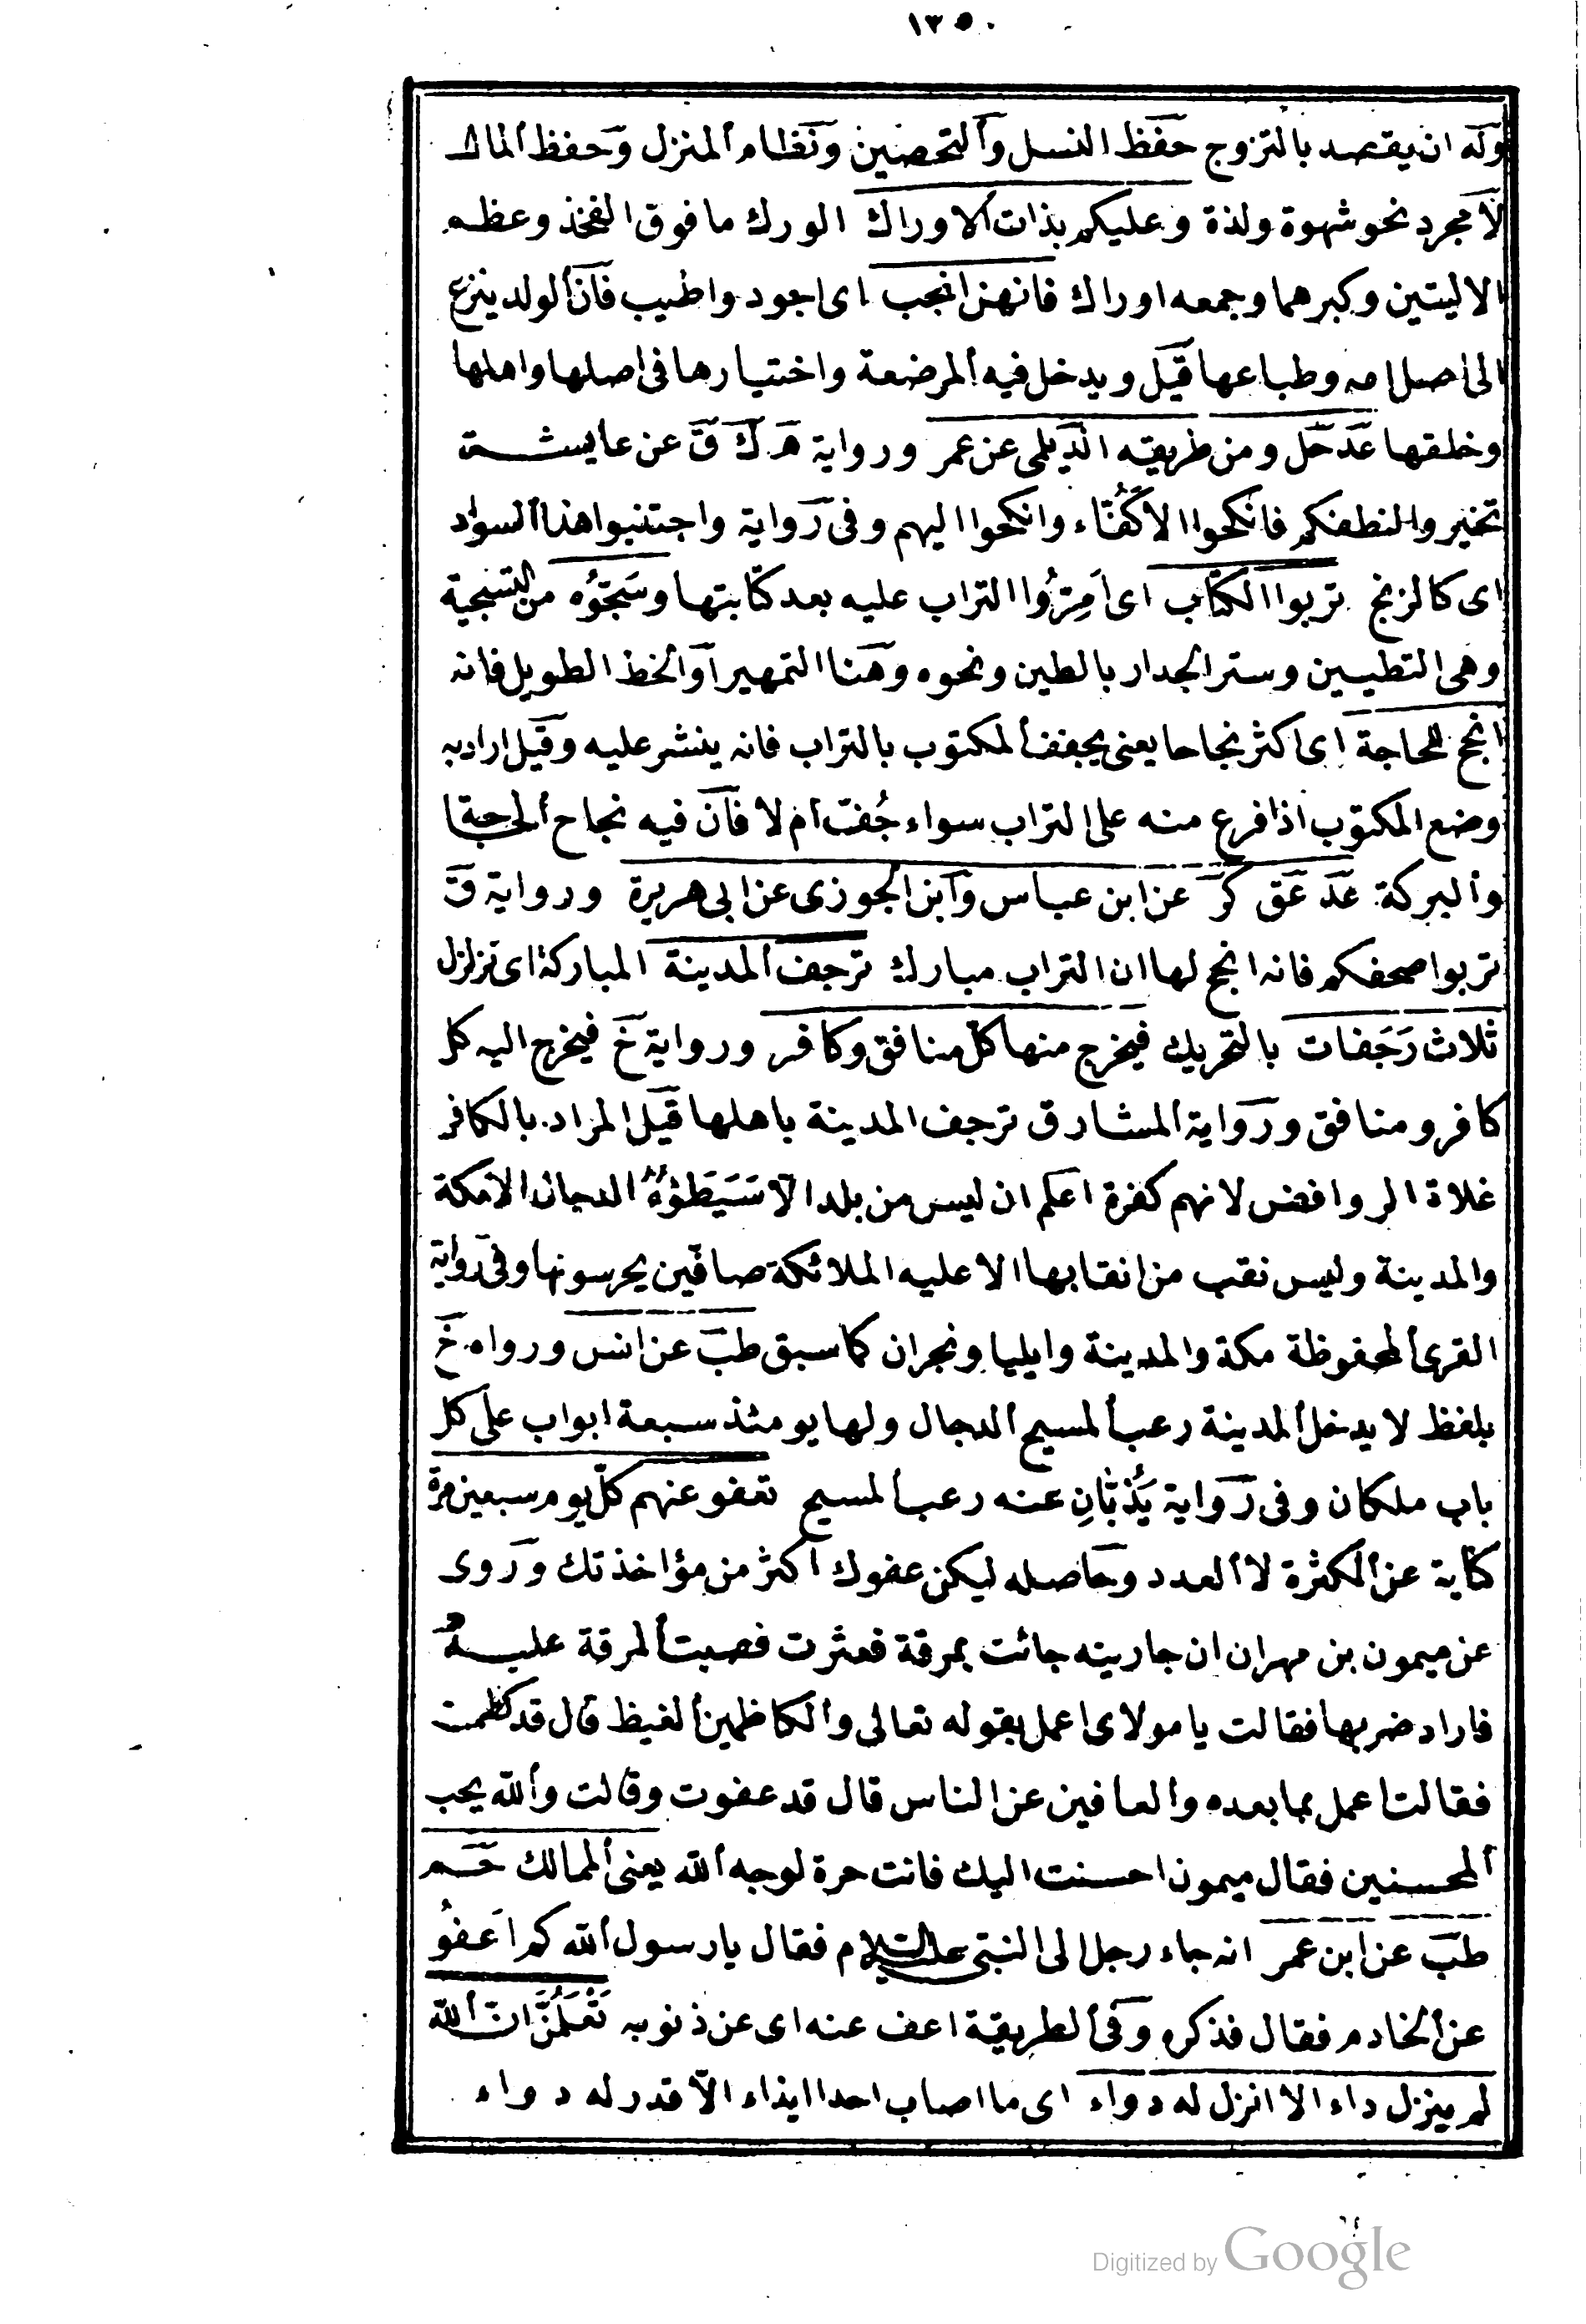 ١٣٥٠
وله ان يقصد بالتزوج حفظ النسل والتحصين ونظام المنزل وحفظ المال
لا مجرد نحو شهوة ولذة وعليكم بذات الاوراك الورك ما فوق الفخذ وعظم
الاليتين وكبرهما وجمعه اوراك فانهن انجب اى اجود واطيب فان الولد ينزع
الى اصل امه وطباعها قيل ويدخل فيه المرضعة واختيارها فى اصلها واهلها
وخلقها عد حل ومن طريقه الديلمى عن عمر ورواية هـ ك ق عن عايشة
تخيروا لنطفكم فانكحوا الاكفاء وانكحوا اليهم وفى رواية واجتنبوا هذا السواد
اى كالزنج تربوا الكتاب اى اَمِرُّوا التراب عليه بعد كتابتها وسَجُّوُه من التسجية
وهى التطيين وستر الجدار بالطين ونحوه وهنا التمهير او الخط الطويل فانه
انجح للحاجة اى اكثر نجاحا يعنى يجفف المكتوب بالتراب فانه ينشر عليه وقيل اراد به
وضع المكتوب اذا فرغ منه على التراب سواء جُفت ام لا فان فيه نجاح الحاجة
والبركة عد عق كر عن ابن عباس وابن الجوزى عن ابى هريرة ورواية ق
تربوا صحفكم فانه انجح لها ان التراب مبارك ترجف المدينة المباركة اى تزلزل
ثلاث رَجَفات بالتحريك فيخرج منها كل منافق وكافر ورواية خ فيخرج اليه كل
كافر ومنافق ورواية المشارق ترجف المدينة باهلها قيل المراد بالكافر
غلاة الروافض لانهم كفرة اعلم ان ليس من بلد الا سَيَطَؤُهُ الدجال الا مكة
والمدينة وليس نقب من انقابها الا عليه الملائكة صافين يحرسونها وفى رواية
القرى المحفوظة مكة والمدينة وايليا ونجران كما سبق طب عن انس ورواه خ
بلفظ لا يدخل المدينة رعب المسيح الدجال ولها يومئذ سبعة ابواب على كل
باب ملكان وفى رواية يَذُبَّانِ عنه رعب المسيح تعفو عنهم كل يوم سبعين مرة
كناية عن الكثرة لا العدد وحاصله ليكن عفوك اكثر من مؤاخذتك وروى
عن ميمون بن مهران ان جاريته جائت بمرقة فعثرت فصبت المرقة عليه
فاراد ضربها فقالت يا مولاى اعمل بقوله تعالى والكاظمين الغيظ قال قد كظمت
فقالت اعمل بما بعده والعافين عن الناس قال قد عفوت وقالت والله يحب
المحسنين فقال ميمون احسنت اليك فانت حرة لوجه الله يعنى المماليك حم
طب عن ابن عمر انه جاء رجل الى النبى عليه السلام فقال يا رسول الله كم اعفو
عن الخادم فقال فذكره وفى الطريقة اعف عنه اى عن ذنوبه تَعْلَمُنَّ ان الله
لم ينزل داء الا انزل له دواء اى ما اصاب احدا ايذاء الا قدر له دواء
Digitized by Google